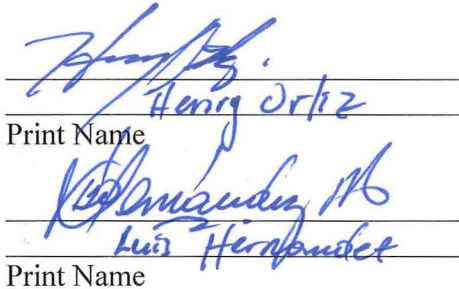 Henry Ortiz
Print Name
Hernandez M
Luis Hernandez
Print Name